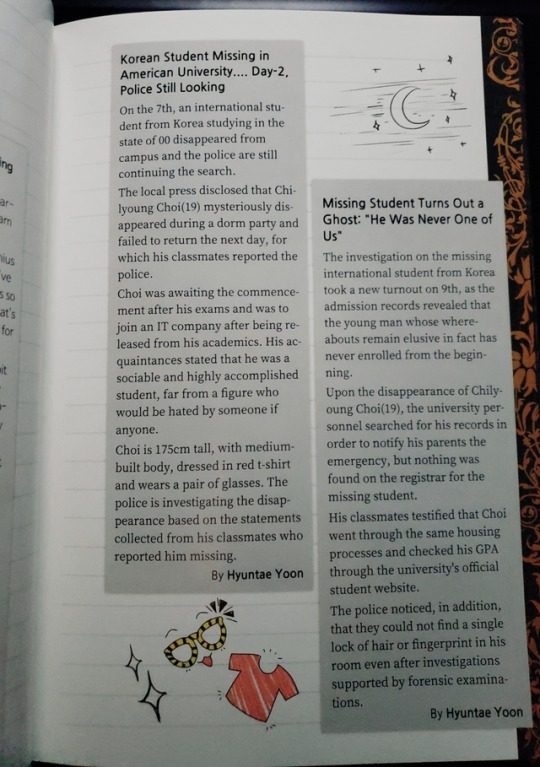 ing
ar-
arn
nius
've
s so
at's
for
it
Korean Student Missing in
American University.... Day-2,
Police Still Looking
On the 7th, an international stu-
dent from Korea studying in the
state of 00 disappeared from
campus and the police are still
continuing the search.
The local press disclosed that Chi-
lyoung Choi(19) mysteriously dis-
appeared during a dorm party and
failed to return the next day, for
which his classmates reported the
police.
Choi was awaiting the commence-
ment after his exams and was to
join an IT company after being re-
leased from his academics. His ac-
quaintances stated that he was a
sociable and highly accomplished
student, far from a figure who
would be hated by someone if
anyone.
Choi is 175cm tall, with medium-
built body, dressed in red t-shirt
and wears a pair of glasses. The
police is investigating the disap-
pearance based on the statements
collected from his classmates who
reported him missing.
By Hyuntae Yoon
Missing Student Turns Out a
Ghost: "He Was Never One of
Us"
The investigation on the missing
international student from Korea
took a new turnout on 9th, as the
admission records revealed that
the young man whose where-
abouts remain elusive in fact has
never enrolled from the begin-
ning.
Upon the disappearance of Chily-
oung Choi(19), the university per-
sonnel searched for his records in
order to notify his parents the
emergency, but nothing was
found on the registrar for the
missing student.
His classmates testified that Choi
went through the same housing
processes and checked his GPA
through the university's official
student website.
The police noticed, in addition,
that they could not find a single
lock of hair or fingerprint in his
room even after investigations
supported by forensic examina-
tions.
By Hyuntae Yoon